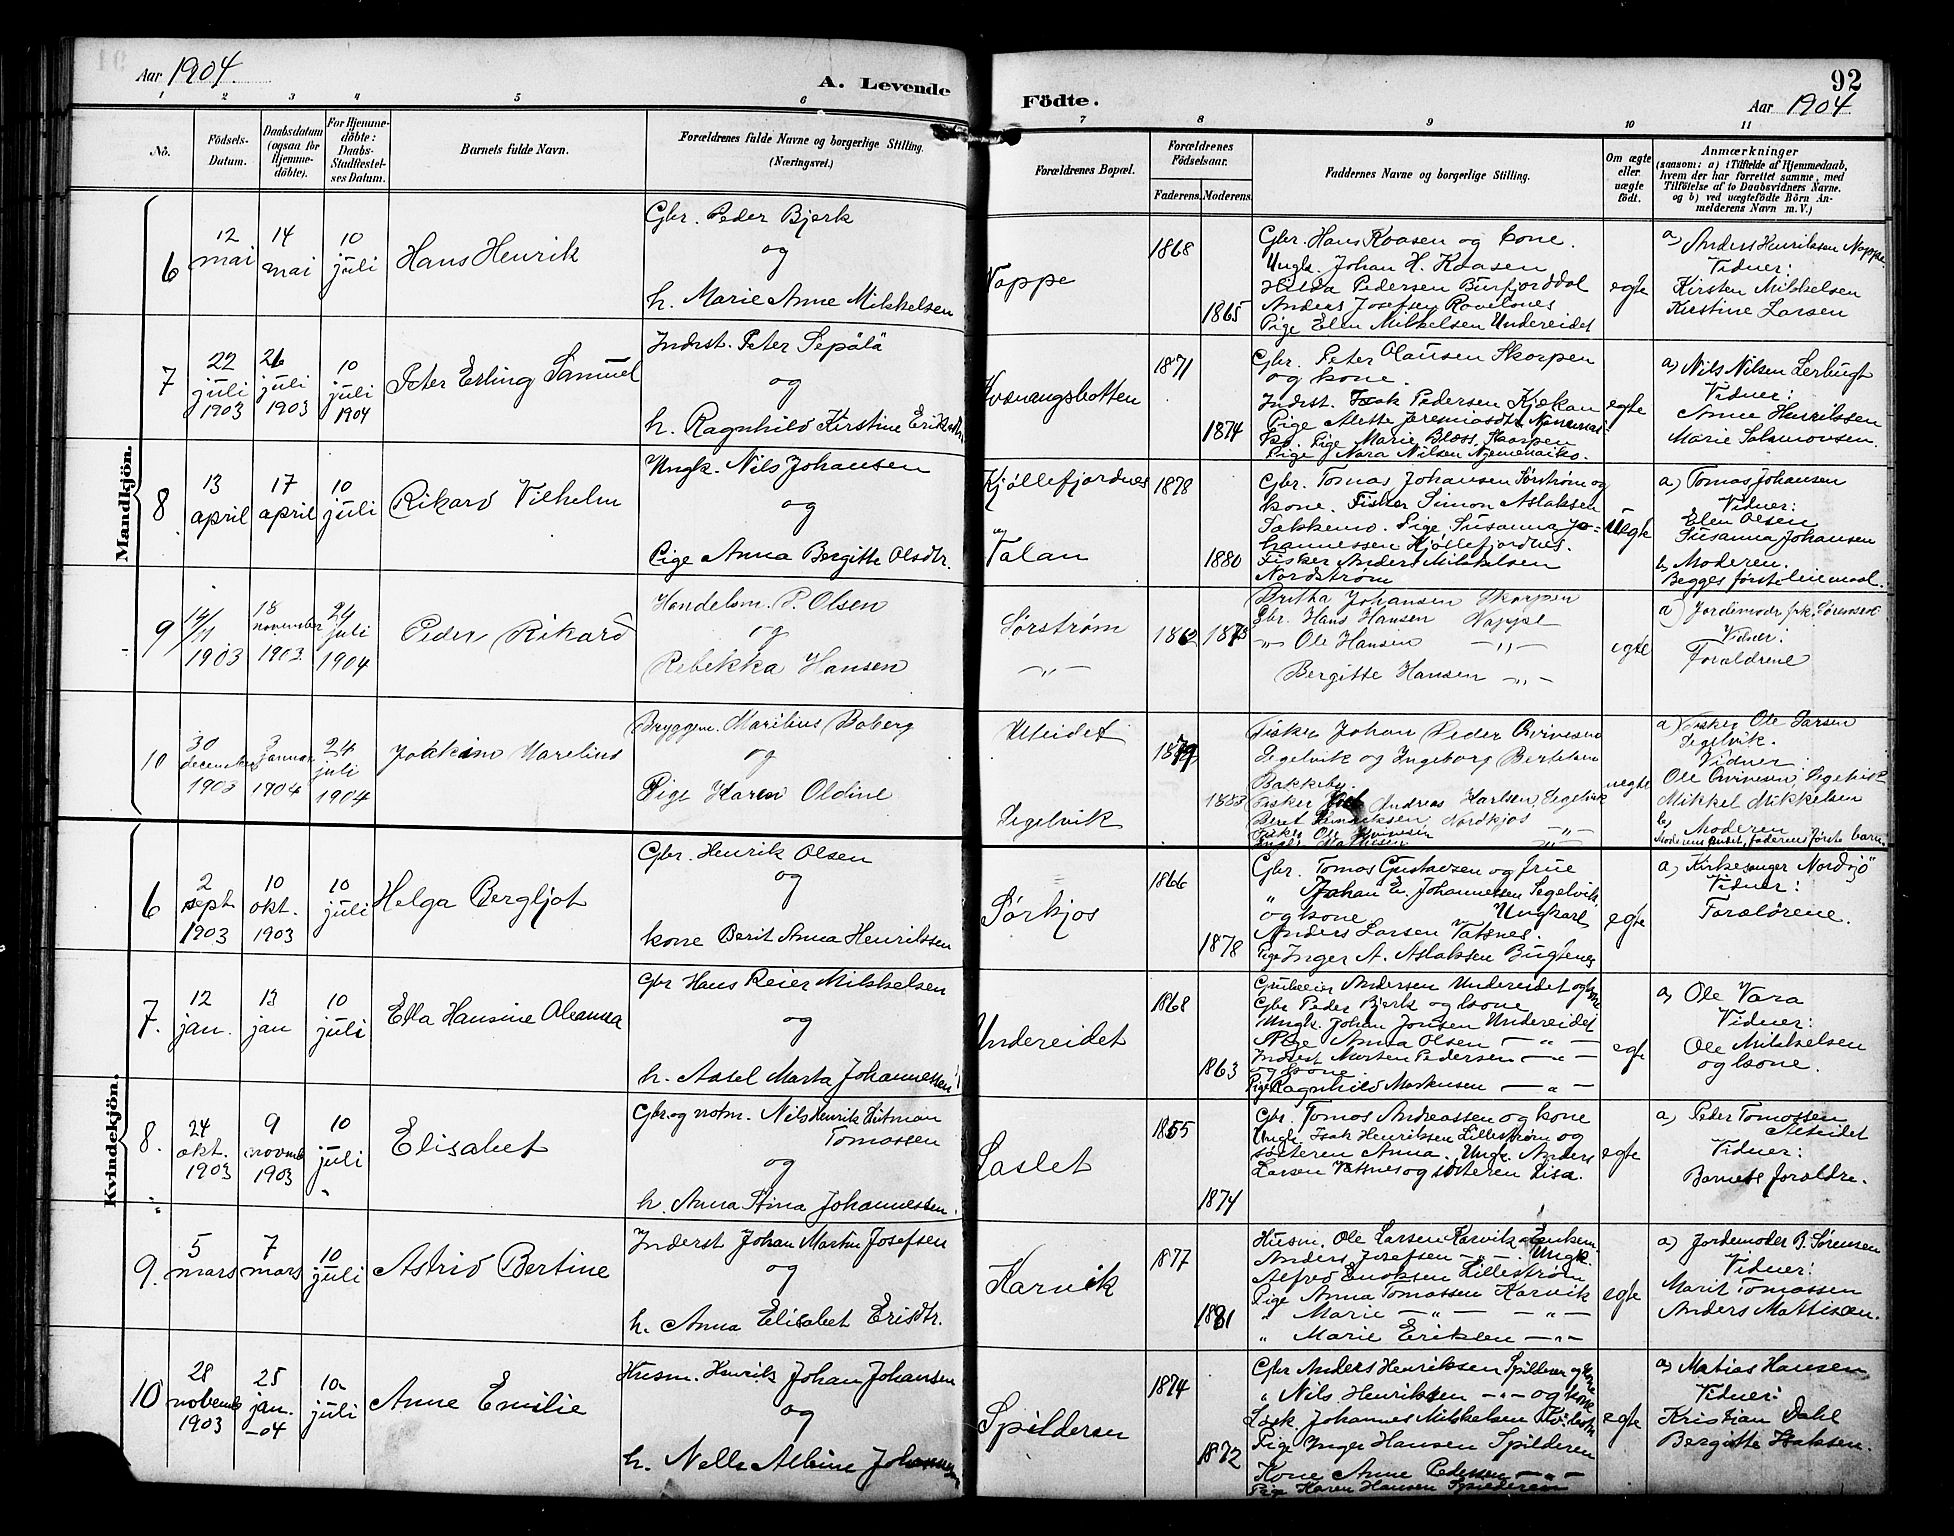 Aar 1904.
A. Levende
Födte.
92
Aar 1904
1 2 3 4 5 6 7 8 9 10 11
No.
Födsels-
Datum.
Daabsdatum
(ogsaa for
Hjemme-
döbte).
For Hjemme-
döbte:
Daabs-
Stadfæstel-
ses Datum.
Barnets fulde Navn.
Forældrenes fulde Navne og borgerlige Stilling.
(Næringsvei.)
Forældrenes Bopæl.
Forældrenes
Födselsaar.
Faderens.
Moderens.
Faddernes Navne og borgerlige Stilling.
Om ægte
eller
uægte
födt.
Anmærkninger
(saasom: a) i Tilfælde af Hjemmedaab,
hvem der har forrettet samme, med
Tilföielse af to Daabsvidners Navne.
og b) ved uægtefödte Börn An-
melderens Navn m. V.)
Mandkjön.
6
12
mai
14
mai
10
juli
Hans Henrik
Gbr. Peder Bjerk
og
h. Marie Anne Mikkelsen
Nappe
1868
1865
Gbr. Hans Kaasen og kone.
Ungk. Johan H. Kaasen
Hilda Pedersen Burfjorddal
Anders Josefsen Ravelsnes
Pige Elen Mikkelsen Undereidet
egte
a) Anders Henriksen Nappe.
Vidner:
Kirsten Mikkelsen
Kirstine Larsen
7
22
juli
1903
26
juli
1903
10
juli
1904
Peter Erling Samuel
Inderst. Peter Sepälä
og
h. Ragnhild Kirstine Eriksdtr.
Kvænangsbotten
1871
1874
Gbr. Peter Olausen Skorpen
og kone.
Inderst. Isak Pedersen Kjækan
Pige Alette Jeremiasdtr
Pige Marie Bless. Skorpen
Pige Nara Nilsen
egte
a) Nils Nilsen Lerbugt
Vidner:
Anne Henriksen
Marie Salamonsen.
8
13
april
17
april
10
juli
Rikard Vilhelm
Ungk. Nils Johansen
og
Pige Anna Bergitte Olsdtr.
Kjøllefjordnes
og
Valan
1878
1880
Gbr. Tomas Johansen Sørstrøm og
kone. Fisker Simon Aslaksen
Sakkemo. Pige Susanna Jo-
hannessen Kjøllefjordnes.
Fisker Anders Mikkelsen
Nordstrøm
uegte
a) Tomas Johansen
Vidner:
Elen Olsen
Susanna Johansen
b) Moderen.
Begges første leiermaal.
9
14/11
1903
18
november
1903
24
juli
1904
Peder Rikard
Handelsm. P. Olsen
og
Rebekka Hansen
Sørstrøm
-„-
1862
1873
Dritha Johansen Skorpen
Gbr. Hans Hansen Nappe
„ Ole Hansen -„-
Bergitte Hansen -„-
egte
a) Jordemodr frk. Sørensen
Vidner:
Forældrene
10
30
december
1903
3
januar
1904
24
juli
1904
Joakim Marelius
Bryggem. Marilius Boberg
og
Pige Karen Oldine
Uleidet
Segelvik
1879
1883
Fisker Johan Peder
Segelvik og Ingeborg Bertelsen
Bakkeby.
Fisker Andreas Karlsen, Segelvik
Beret Henriksen, Nordkjos
Fisker Ole
uegte
a) Fisker Ole Larsen
Segelvik.
Vidner:
Ole Arvinesen, Segelvik
Mikkel Mikkelsen
b) Moderen
Moderens andet, faderens første barn.
Kvindekjön.
6
2
sept
1903
10
okt.
1903
10
juli
Helga Bergljot
Gbr. Henrik Olsen
og
kone Berit Anna Henrikssen
Sørkjos
1866
1878
Gbr. Tomas Gustavsen og frue
„ Johan E. Johannessen Segelvik
og kone Ungkarl
Anders Larsen Vatsnes.
Pige Inger A. Aslaksen Bugtenes
egte
a) Kirkesanger Nordsjö
Vidner:
Forældrene.
7.
12
jan.
13
jan
10
juli
Ella Hansine Oleanna
Gbr Hans Reier Mikkelsen
og
h. Assel Marta Johannessen
Undereidet
1868
1863
Andersen Undereidet og kone
Gbr Peder Bjerk og kone
Ungk. Johan Jonsen Undereidet
Pige Anna Olsen -„-
Inderst Morten Pedersen -„-
og kone
Pige Ragnhild Markusen -„-
egte
a) Ole Vara
Vidner:
Ole Mikkelsen
og kone.
8.
24
okt.
1903
9
novemb
1903
10
juli
„
Elisabet
Gbr. og notm. Nils Henrik Hitman
Tomassen
og
h. Anna Stina Johannessen.
Laslet
1855
1874
Gbr. Tomas Andreassen og kone
Ungk. Isak Henriksen Lillestrøm og
søsteren Anna. Ungk. Anders
Larsen Vatsnes og søsteren Lisa.
egte
a) Peder Tomassen
Alteidet
Vidner:
Barnets forældre.
9.
5
mars
7
mars
10
juli
Astrid Bertine
Inderst Johan Martin Josefsen
og
h. Anna Elisabet Erisdtr.
Karvik
1877
1881
Husm. Ole Larsen Karvik Enkem.
Anders Josefsen -„- Ungk.
Alfred Enoksen Lillestrøm
Pige Anna Tomassen Karvik
„ Marie -„- -„-
„ Marie Eriksen -„-
egte
a) Jordemoder B. Sørensen
Vidner:
Marit Tomassen
Anders Mattisen.
10
28
november
1903
25
jan.
-04
10
juli
Anne Emilie
Husm. Henrik Johan Johansen
og
h. Nelle Albine
Spilderen
1874
1872
Gbr Anders Henriksen Spilderen og kone
„ Nils Henriksen -„- og kone
Løsk Johannes Mikkelsen
Pige Inger Hansen Spilderen
Kone Anne Pedersen -„-
Pige Karen Hansen Spilderen
egte
a) Matias Hansen
Vidner:
Kristian Dahl
Bergitte Isaksen.